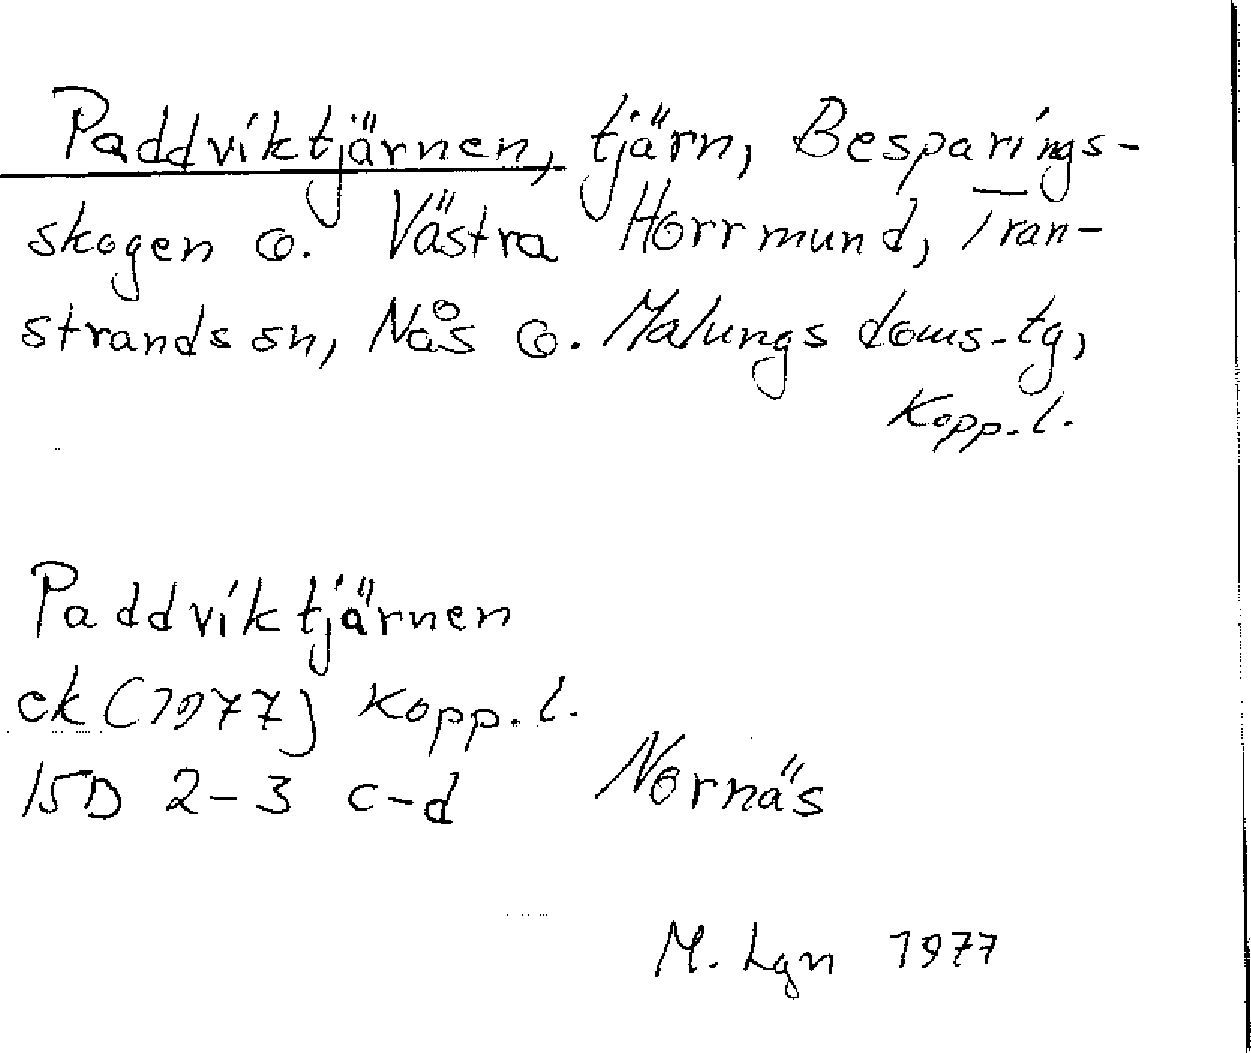 Paddviktjärnen, tjärn, Besparings-
skogen o. Västra Horrmund, Tran-
strands sn, Nås o. Malungs doms-tg,
Kopp. l.
Paddviktjärnen
ek (1977) Kopp. l.
15D 2-3 c-d Nornäs
M. Lgn 1977